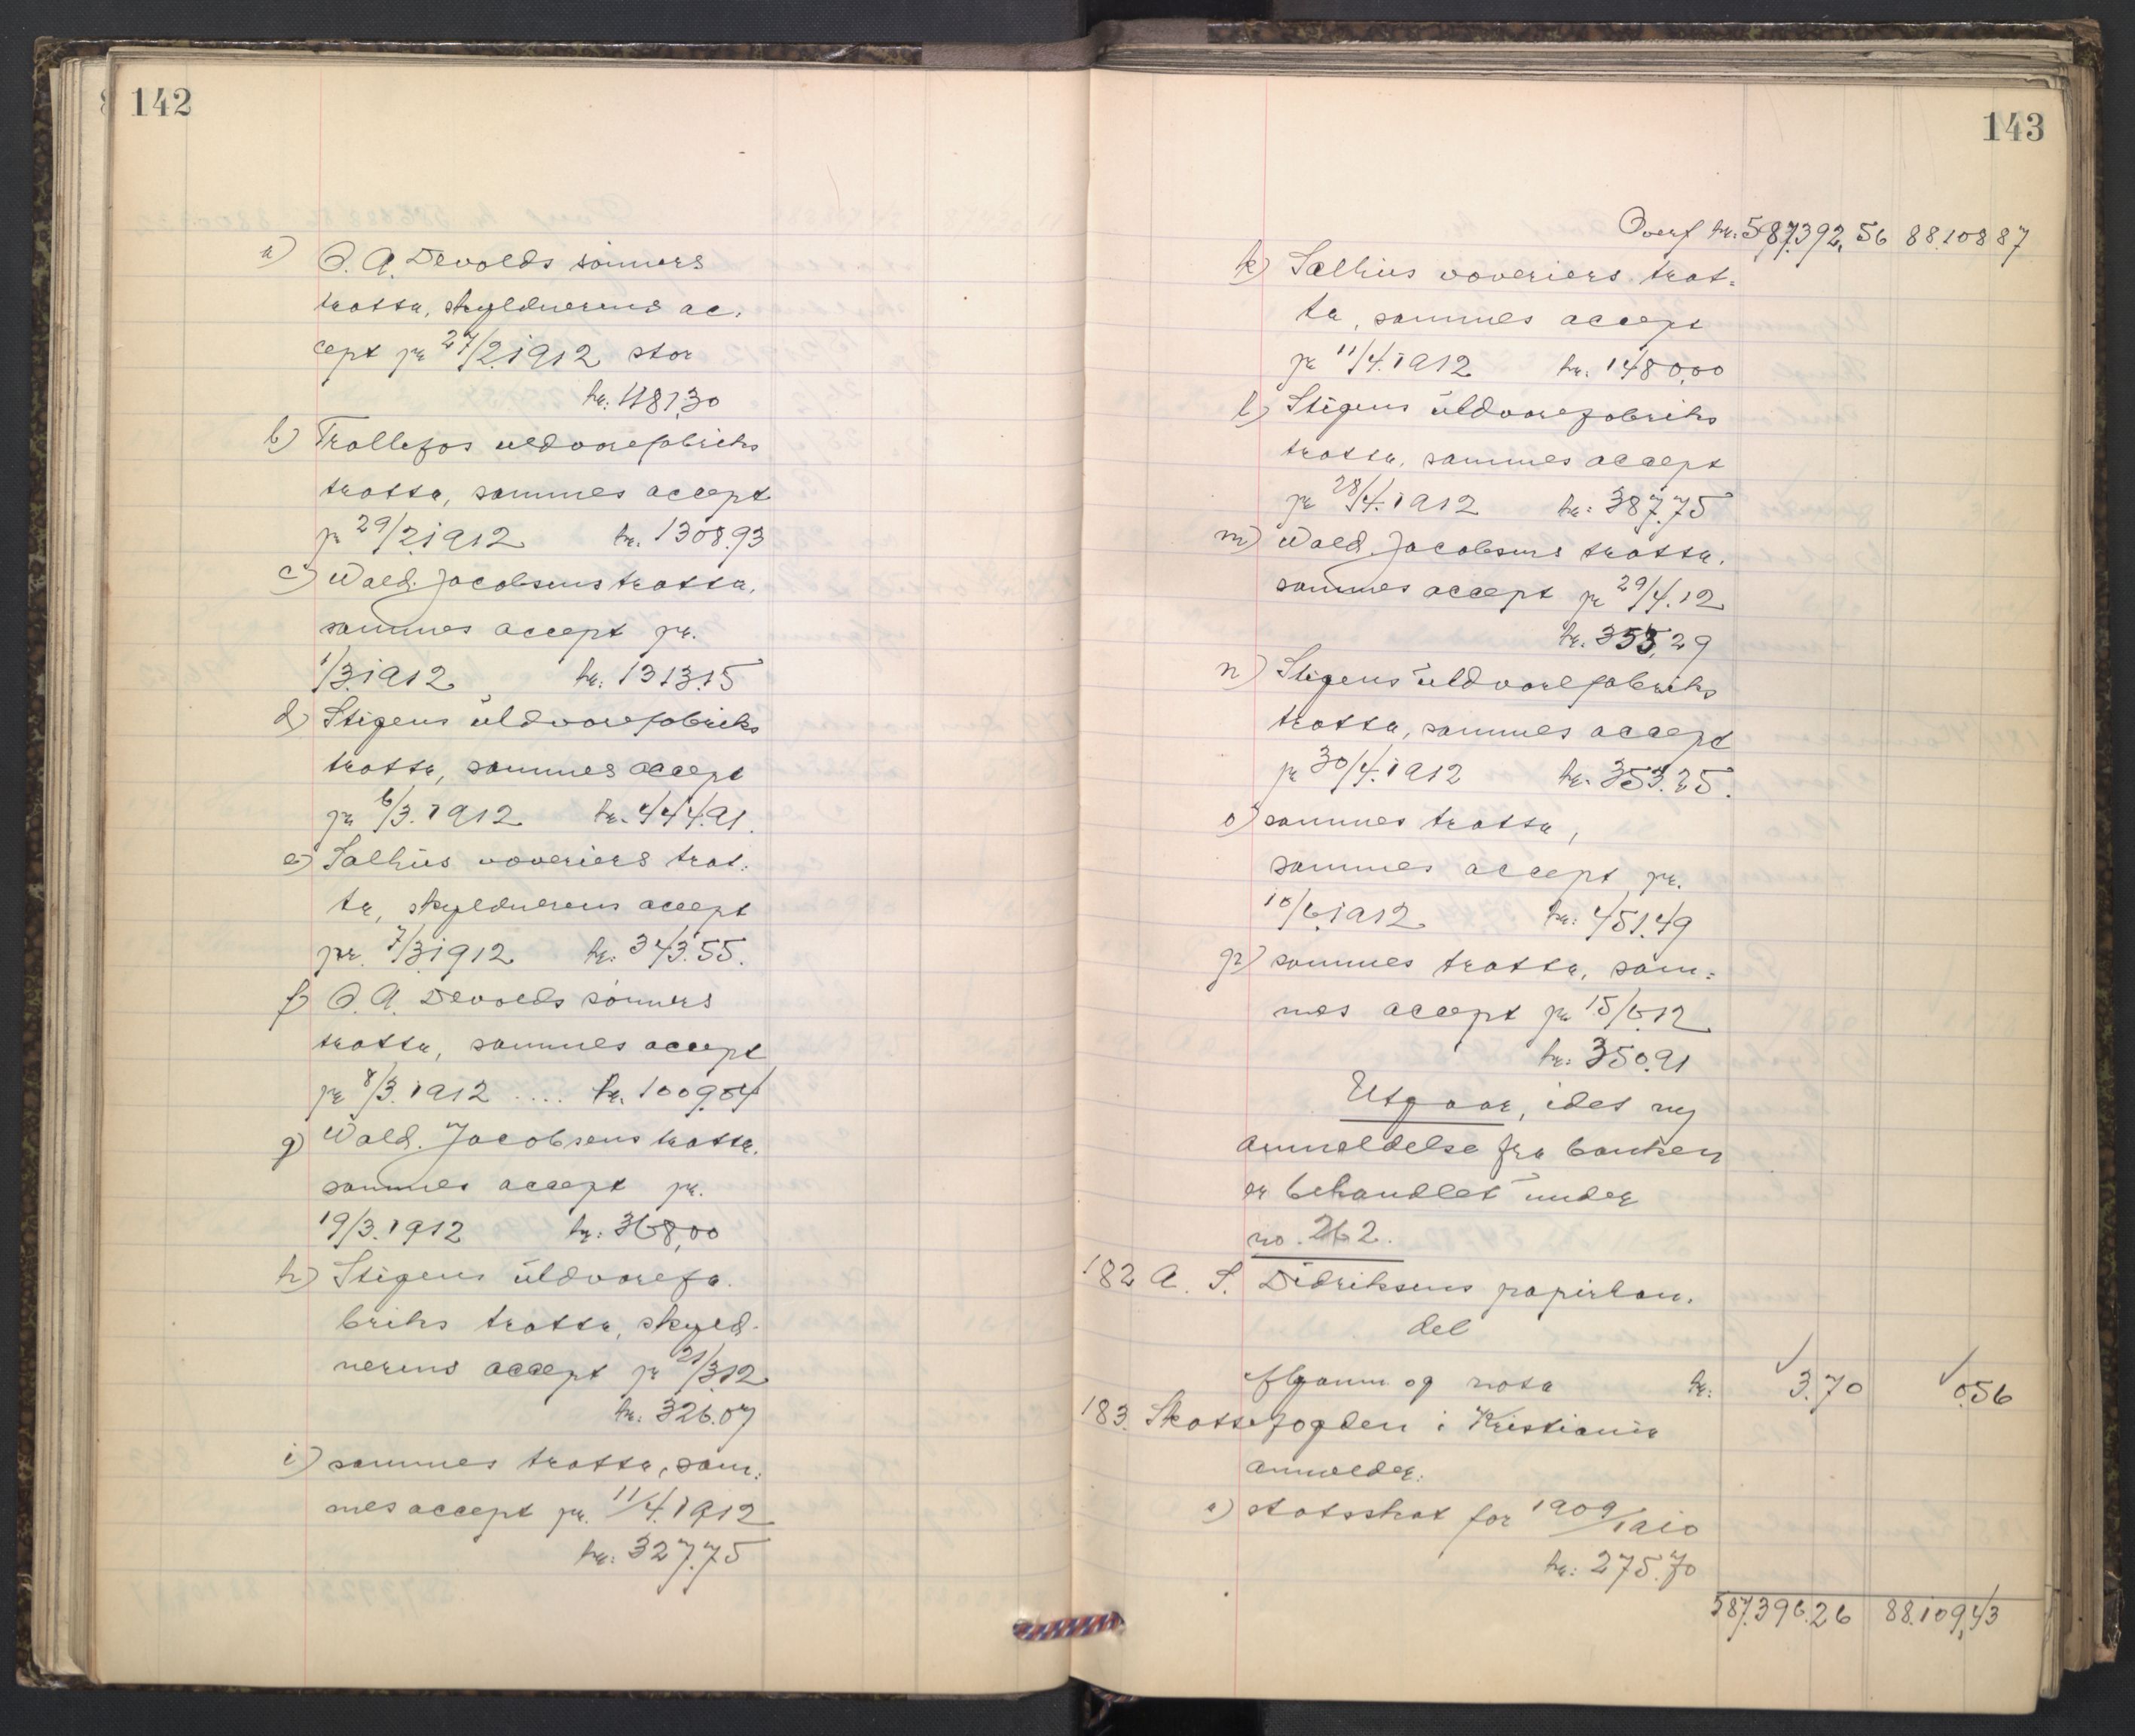 142
a) O. A. Devolds sønners
tratta, skyldnerens ac-
cept pr 27/2.1912 stor
kr. 481,30
b) Trollefos uldvarefabriks
tratta, sammes accept
pr 29/2.1912 kr. 1308.93
c) Wald. Jacobsens tratta,
sammes accept pr.
1/3.1912 kr. 1313.15
d) Stigens uldvarefabriks
tratta, sammes accept
pr 6/3.1912 kr. 444.91.
e) Salhus væveriers trat-
ta, skyldnerens accept
pr. 7/3.1912 kr. 343.55.
f) O. A. Devolds sønners
tratta, sammes accept
pr 8/3.1912 .... kr. 1009.04
g) Wald. Jacobsens tratta,
sammes accept pr.
19/3.1912 kr. 368,00
h) Stigens uldvarefa-
briks tratta, skyld-
nerens accept pr 21/3.12
kr. 326.07
i) sammes tratta, sam-
mes accept pr. 11/4.1912
kr. 327.75
143
Overf kr. 587.392,56 88.108 87
k) Salhus væveriers trat-
ta, sammes accept
pr 11/4.1912 kr. 1480,00
l) Stigens uldvarefabriks
tratta, sammes accept
pr 28/4.1912 kr. 387.75
m) Wald. Jacobsens tratta,
sammes accept pr 29/4.12
kr. 353,29
n) Stigens uldvarefabriks
tratta, sammes accept
pr 30/4.1912 kr. 353.25.
o) sammes tratta,
sammes accept pr.
10/6.1912 kr. 451.49
p) sammes tratta, sam-
mes accept pr 15/6.12
kr. 350.91
Utgaar, idet ny
anmeldelse fra banken
er behandlet under
no. 262.
182 A. S. Didriksens papirhan-
del
og nota kr. 3.70 0.56
183. Skattefogden i Kristiania
anmelder:
a) statsskat for 1909/1910
kr. 275.70
587.396.26 88.109,43